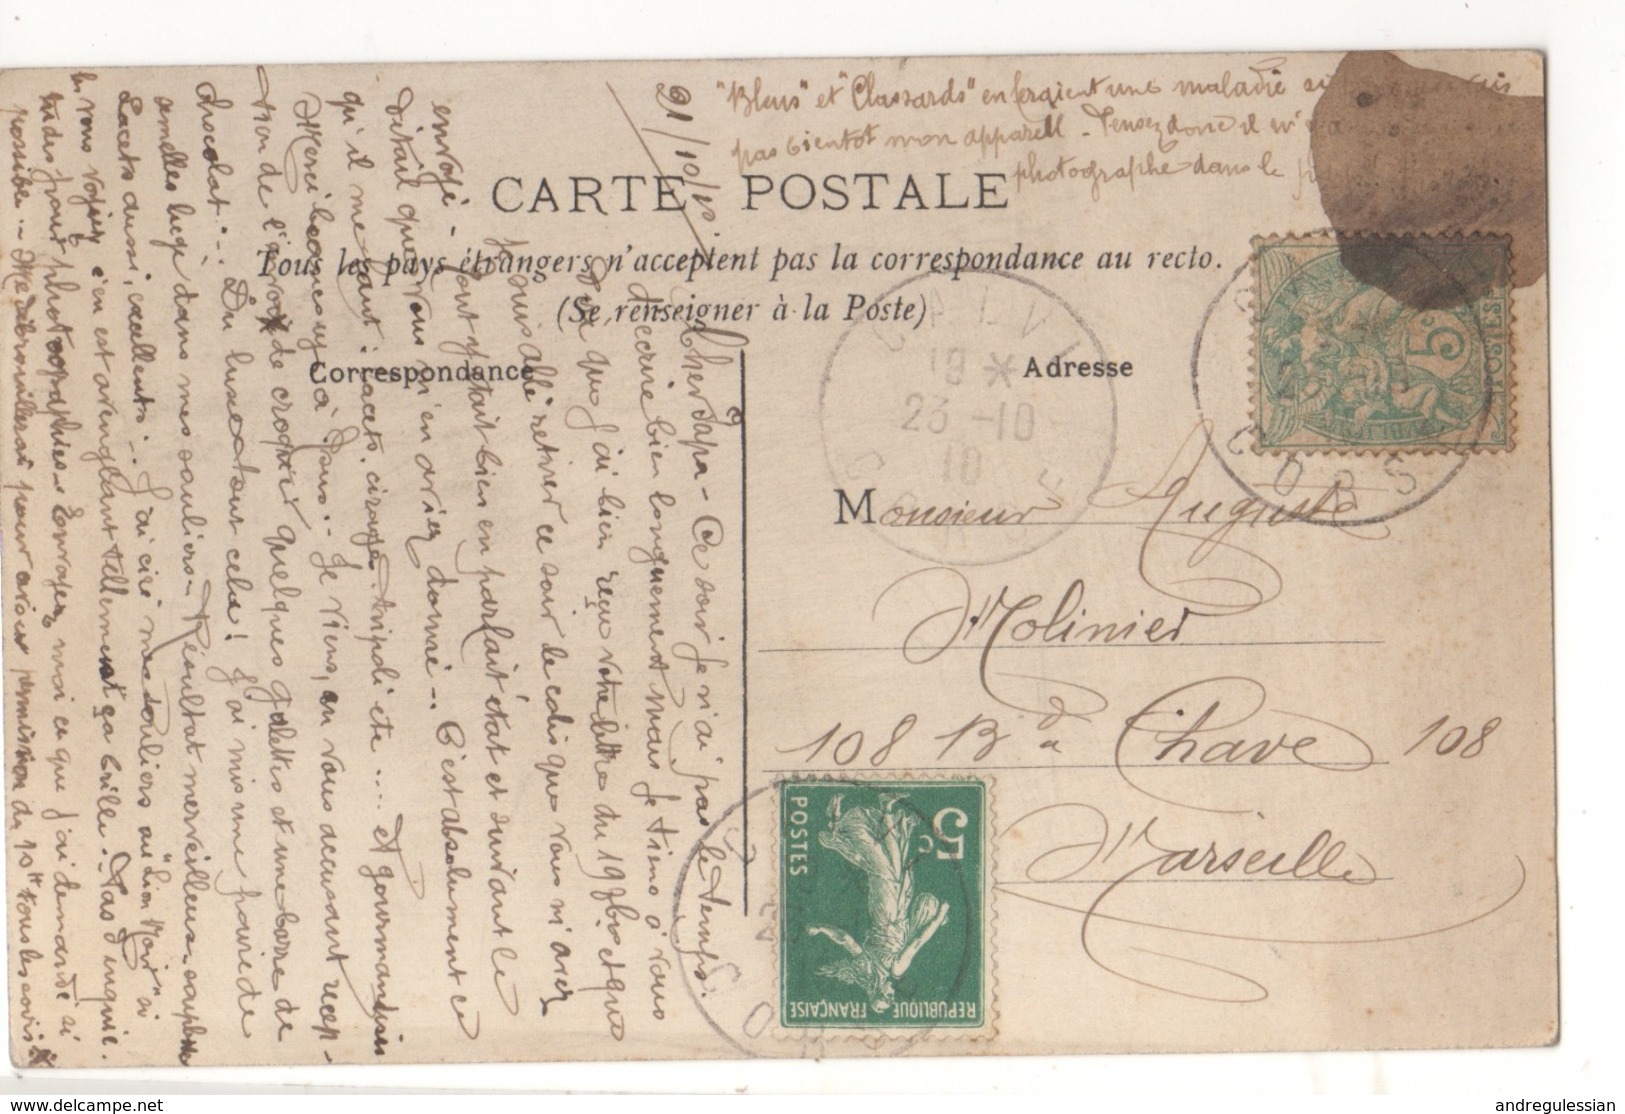 "Bleus" et "Classards" en feraient une maladie si
pas bientôt mon appareil. Pensez donc il n'y a
photographe dans le
CARTE POSTALE
Tous les pays étrangers n'acceptent pas la correspondance au recto.
(Se renseigner à la Poste)
Correspondance
Adresse
21/10/10
Cher Papa – Ce soir je n'ai pas le temps
d'écrire bien longuement mais je tiens à vous
dire que j'ai bien reçu votre lettre du 19 et que
je suis allé retirer ce soir le colis que vous m'avez
envoyé – Tout y était bien en parfait état et suivant le
détail que vous m'en aviez donné .. C'est absolument ce
qu'il me faut : lacets, cirages, tripoli etc ... et gourmandises
Merci beaucoup à tous .. Je viens, en vous accusant récep-
tion de l'envoi de croquer quelques galettes et une barre de
chocolat ... Du luxe tout cela ! J'ai mis une paire de
semelles liège dans mes souliers – Résultat merveilleux
Lacets aussi, excellents ... J'ai ciré mes souliers au "Lion Noir" si
vous voyiez c'en est aveuglant tellement ça brille. Pas d'inquié-
tudes pour photographies – Envoyez moi ce que j'ai demandé si
possible ... Me débrouillerai pour avoir permission de 10h tous les soirs
GALNI
19 *
23 -10
10
5c
POSTES
Monsieur Auguste
Molinier
108 Bd Chave 108
Marseille
5c
POSTES
REPUBLIQUE FRANÇAISE
andregulessian